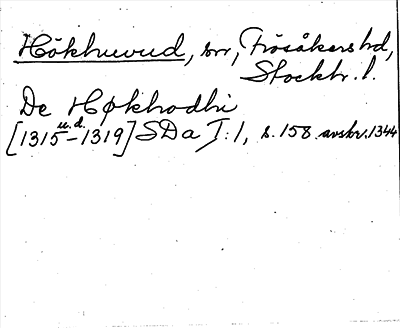 Hökhuvud, sn, Frösåkers hd,
Stockh. l.
De Høkhodhi
u. d.
[1315–1319] SDa I: 1, s. 158 avskr. 1344